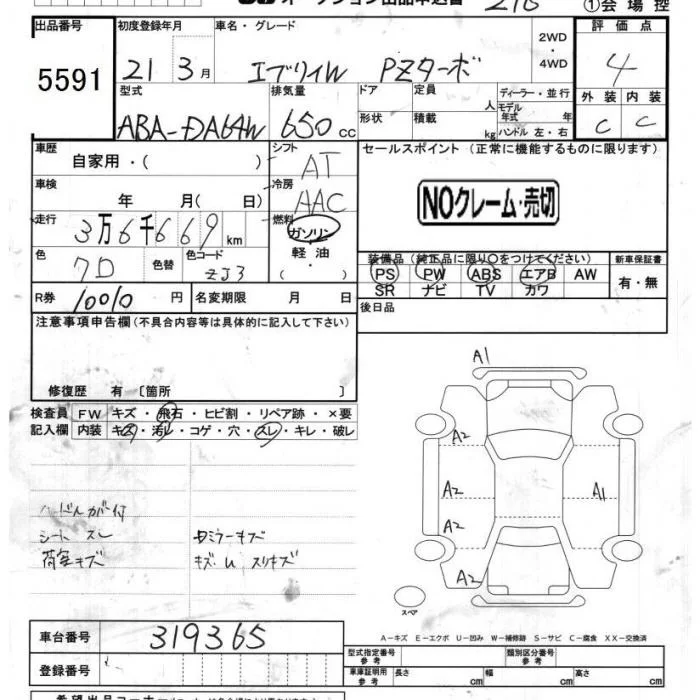 オークション出品申込書 216 ①会場控
出品番号 初度登録年月 車名・グレード 2WD・4WD 評価点
5591 21 3月 エブリイW PZターボ 4
型式 排気量 ドア 定員 人 ディーラー・並行 外装 内装
ABA-DA64W 650cc 形状 積載 kg モデル年式 年 ハンドル 左・右 C C
車歴 自家用・( ) シフト AT セールスポイント (正常に機能するものに限ります)
車検 年 月( 日) 冷房 AAC NOクレーム・売切
走行 3万6千669km 燃料 ガソリン・軽油・( )
色 色替 色コード ZJ3 装備品 (純正品に限り○をつけてください) 新車保証書
PS PW ABS エアB AW 有・無
SR ナビ TV カワ
R券 10010円 名変期限 月 日 後日品
注意事項申告欄 (不具合内容等は具体的に記入して下さい)
修復歴 有 〔箇所 〕
検査員 FW キズ・飛石・ヒビ割・リペア跡・×要
記入欄 内装 キズ・汚レ・コゲ・穴・スレ・キレ・破レ
ハンドルカバー付
シート スレ
荷室キズ
キズ
A1
A2
A2 A1
A2
A2
スペア
A-キズ E-エクボ U-凹み W-補修跡 S-サビ C-腐食 XX-交換済
車台番号 319365
登録番号
型式指定番号 参考 類別区分番号 参考
車庫証明用 参考 長さ cm 幅 cm 高さ cm
希望出品コーナー